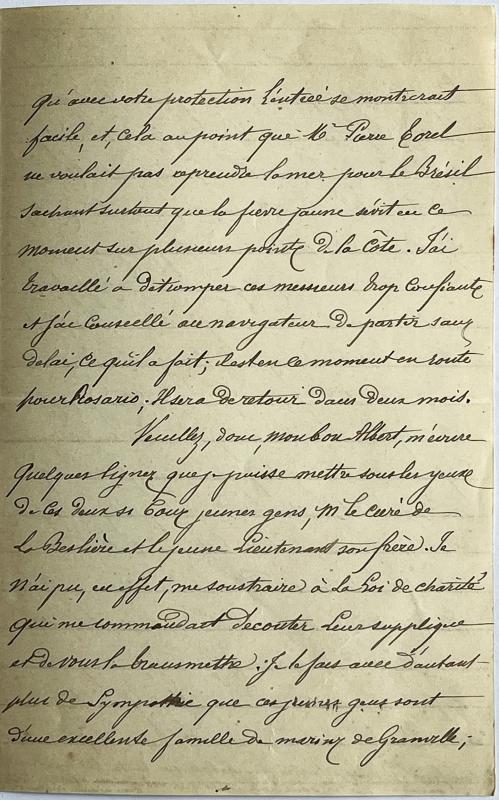 qu'avec votre protection l'entrée se montrerait
facile, et, cela au point que Mr Pierre Corel
ne voulait pas reprendre la mer pour le Brésil
sachant surtout que la fievre jaune sévit en ce
moment sur plusieurs points de la Côte. J'ai
travaillé a détromper ces messieurs trop confiants
et j'ai conseillé au navigateur de partir sans
delai, ce qu'il a fait; il est en ce moment en route
pour Rosario; Il sera de retour dans deux mois.
Veuillez, donc, mon bon Albert, m'écrire
quelques lignes que je puisse mettre sous les yeux
de ces deux si bons jeunes gens, M le curé de
la Beslière et le jeune Lieutenant son frère. Je
n'ai pu, en effet, me soustraire à la Loi de charité
qui me commandait d'ecouter leur supplique
et de vous la transmettre. Je le fais avec d'autant
plus de Sympathie que ces jeunes gens sont
d'une excellente famille de marins de Granville,